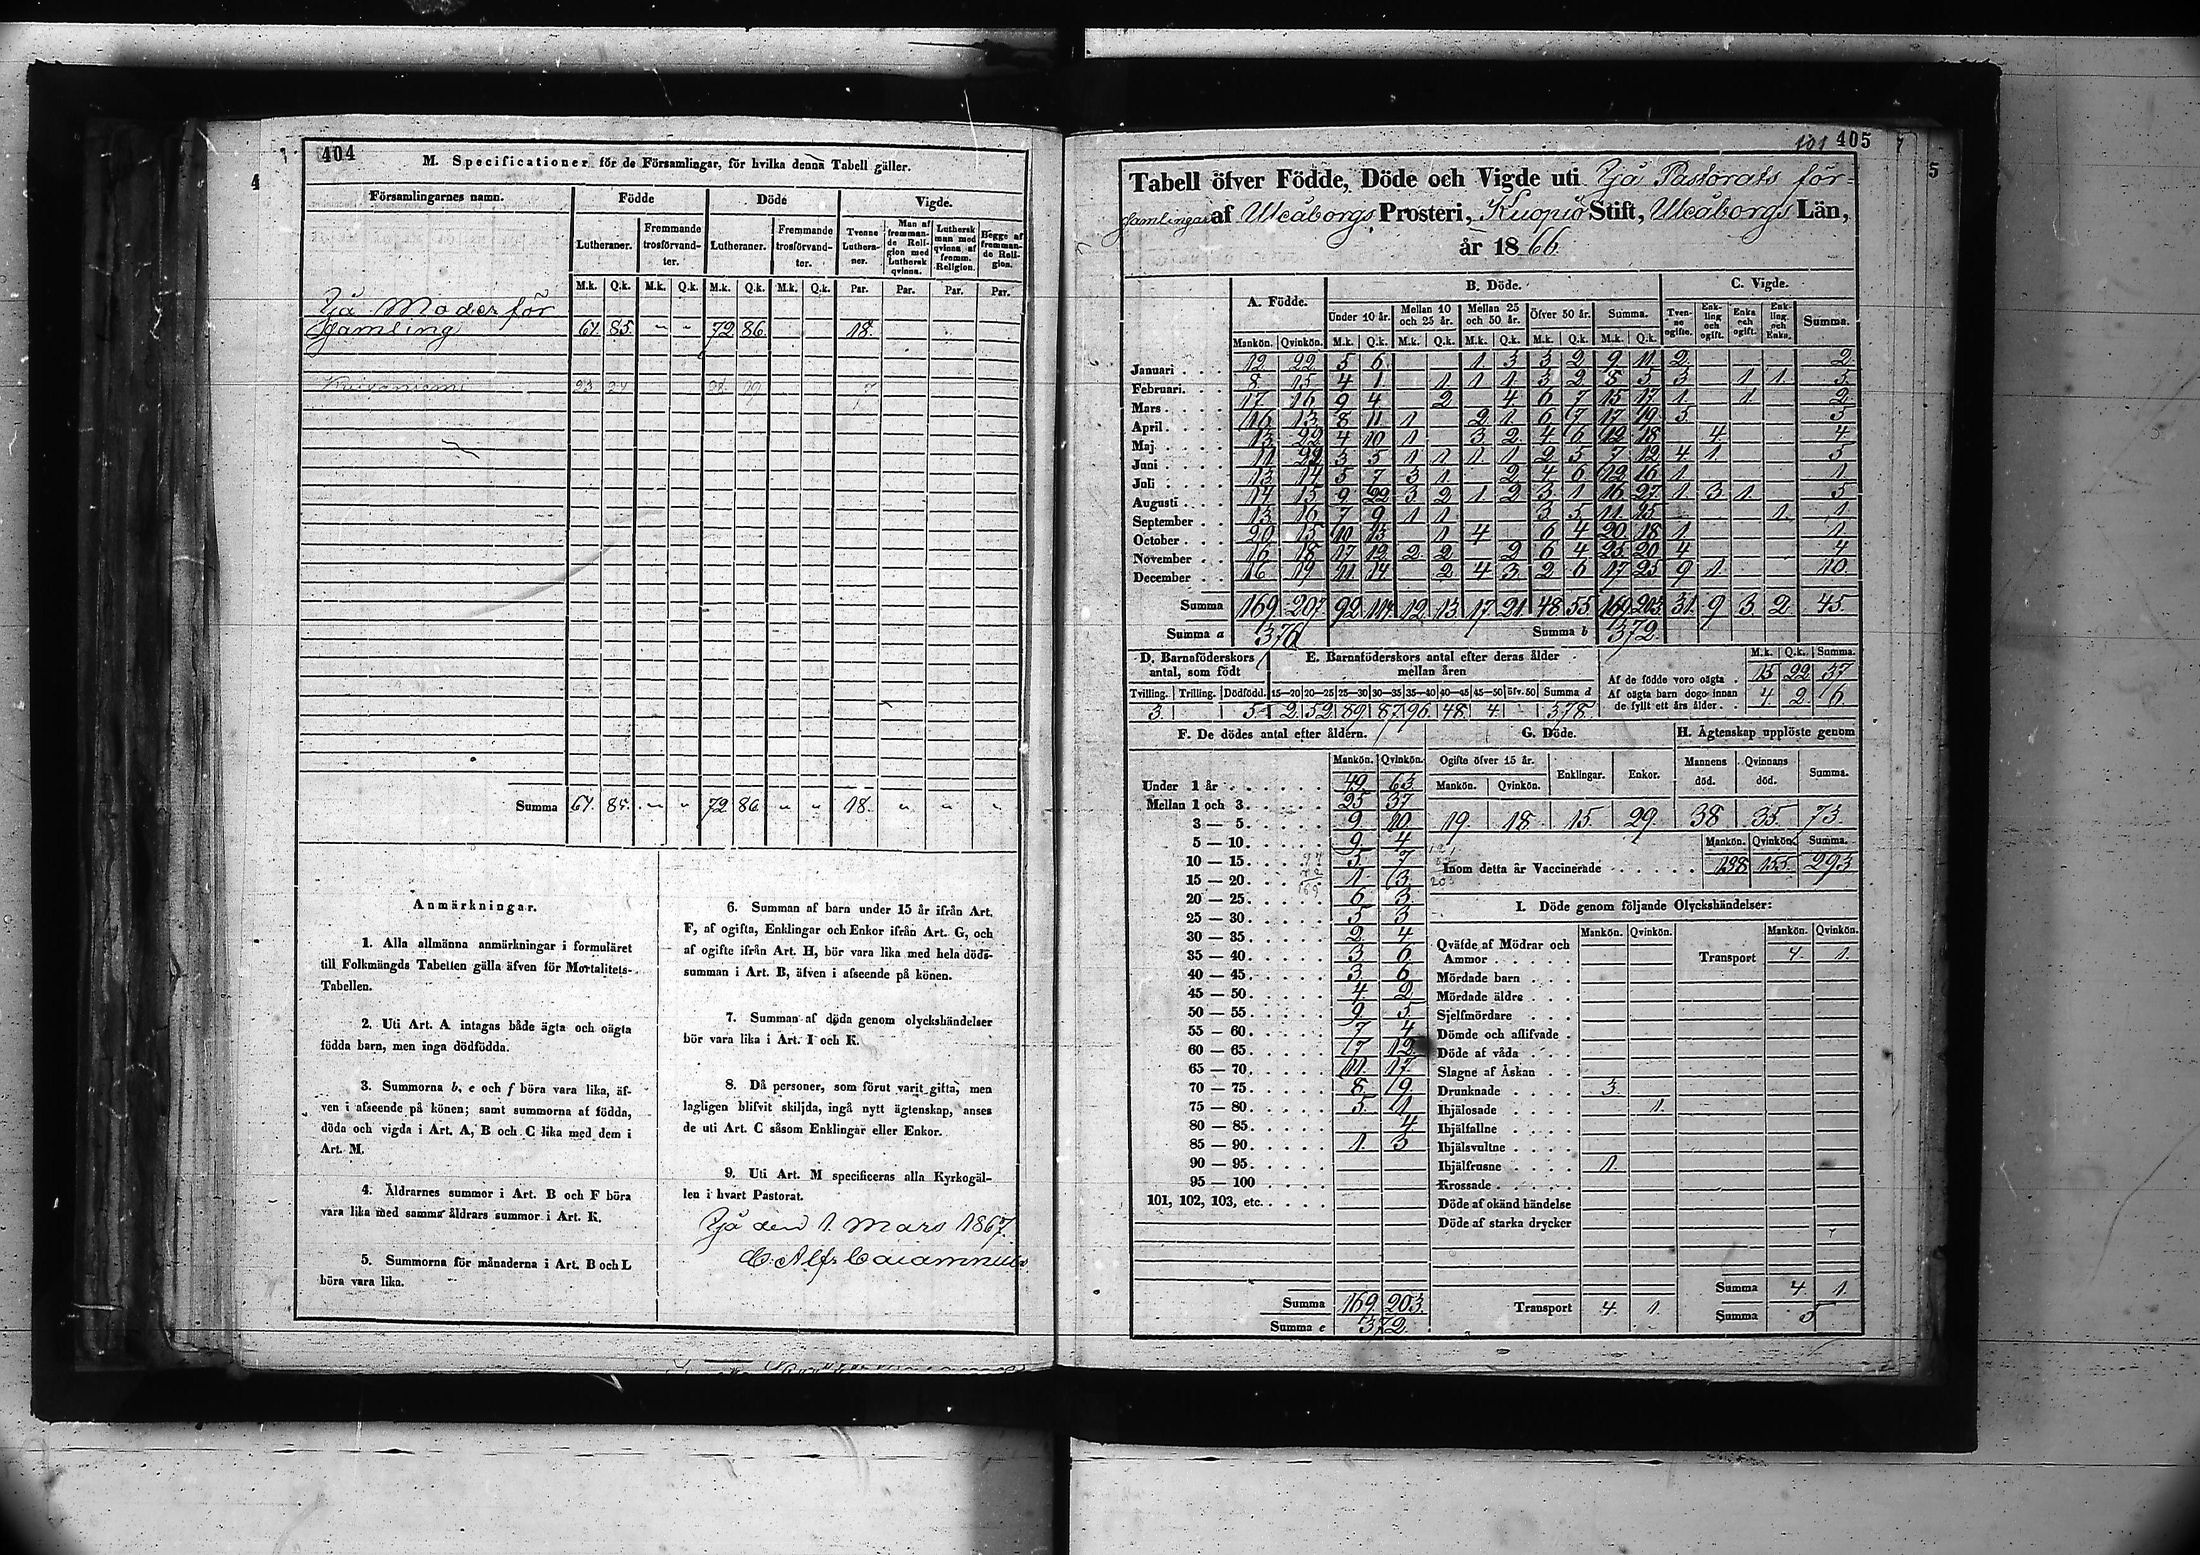 404
M. Specificationer för de Församlingar, för hvilka denna Tabell gäller.
Församlingarnes namn. Födde Döde Vigde.
Lutheraner. Fremmande trosförvandter. Lutheraner. Fremmande trosförvandter. Tvenne Lutheraner. Man af fremmande Religion med Luthersk qvinna. Luthersk man med qvinna af fremm. Religion. Begge af fremmande Religion.
M.k. Q.k. M.k. Q.k. M.k. Q.k. M.k. Q.k. Par. Par. Par. Par.
Ijå Moderför
samling 61. 85. " " 72 86 18.
Kuivaniemi
Summa 61. 85. " " 72 86 " " 18. " " "
Anmärkningar.
1. Alla allmänna anmärkningar i formuläret
till Folkmängds Tabellen gälla äfven för Mortalitets-
Tabellen.
2. Uti Art. A intagas både ägta och oägta
födda barn, men inga dödfödda.
3. Summorna b, e och f böra vara lika, äf-
ven i afseende på könen; samt summorna af födda,
döda och vigda i Art. A, B och C lika med dem i
Art. M.
4. Åldrarnes summor i Art. B och F böra
vara lika med samma åldrars summor i Art. K.
5. Summorna för månaderna i Art. B och L
böra vara lika.
6. Summan af barn under 15 år ifrån Art.
F, af ogifta, Enklingar och Enkor ifrån Art. G, och
af ogifte ifrån Art. H, bör vara lika med hela döds-
summan i Art. B, äfven i afseende på könen.
7. Summan af döda genom olyckshändelser
bör vara lika i Art. I och K.
8. Då personer, som förut varit gifta, men
lagligen blifvit skiljda, ingå nytt ägtenskap, anses
de uti Art. C såsom Enklingar eller Enkor.
9. Uti Art. M specificeras alla Kyrkogäl-
len i hvart Pastorat.
Ijå den 1. Mars 1867.
101 405
Tabell öfver Födde, Döde och Vigde uti Ijå Pastorats för=
samlingar af Uleåborgs Prosteri, Kuopio Stift, Uleåborgs Län,
år 1866.
A. Födde. B. Döde. C. Vigde.
Under 10 år. Mellan 10 och 25 år. Mellan 25 och 50 år. Öfver 50 år. Summa. Tvenne ogifte. Enkling och ogift. Enka och ogift. Enkling och Enka. Summa.
Mankön. Qvinkön. M.k. Q.k. M.k. Q.k. M.k. Q.k. M.k. Q.k. M.k. Q.k.
Januari 12 22 5 6 1 3 3 2 9 11 2 2
Februari. 8 15 4 1 1 1 1 3 2 8 5 3 1 1 5
Mars 17 16 9 4 2 4 6 7 15 17 1 1 2
April 16 13 8 11 1 2 1 6 7 17 19 5 5
Maj 13 22 4 10 1 3 2 4 6 12 18 4 4
Juni 11 22 3 5 1 1 1 1 2 5 7 12 4 1 5
Juli 13 14 5 7 3 1 2 4 6 12 16 1 1
Augusti 14 15 9 22 3 2 1 2 3 1 16 27 1 3 1 5
September 13 16 7 9 1 1 3 5 11 25 1 1
October 20 15 10 13 1 4 6 4 20 18 1 1
November 16 18 17 12 2 2 2 6 4 25 20 4 4
December 16 19 11 14 2 4 3 2 6 17 25 9 1 10
Summa 169 207 92 114 12 13 17 21 48 55 169 203 31 9 3 2 45
Summa a 376 Summa b 372
D. Barnaföderskors antal, som födt
E. Barnaföderskors antal efter deras ålder mellan åren
Tvilling. Trilling. Dödfödd. 15—20 20—25 25—30 30—35 35—40 40—45 45—50 öfv. 50 Summa d
3. 5 2 52 89 87 96 48 4 378
M.k. Q.k. Summa.
Af de födde voro oägta 15 22 37
Af oägta barn dogo innan de fyllt ett års ålder 4 2 6
F. De dödes antal efter åldern.
Mankön. Qvinkön.
Under 1 år 49 63
Mellan 1 och 3 25 37
3 — 5 9 10
5 — 10 9 4
10 — 15 5 7
15 — 20 1 3
20 — 25 6 3
25 — 30 5 3
30 — 35 2 4
35 — 40 3 6
40 — 45 3 6
45 — 50 4 2
50 — 55 9 5
55 — 60 7 4
60 — 65 7 12
65 — 70 11 17
70 — 75 8 9
75 — 80 5 1
80 — 85 4
85 — 90 1 3
90 — 95
95 — 100
101, 102, 103, etc.
Summa 169 203
Summa e 372
G. Döde.
Ogifte öfver 15 år. Enklingar. Enkor.
Mankön. Qvinkön.
19 18 15 29
H. Ägtenskap upplöste genom
Mannens död. Qvinnans död. Summa.
38 35 73
Mankön. Qvinkön. Summa.
Inom detta år Vaccinerade 138 155 293
I. Döde genom följande Olyckshändelser:
Mankön. Qvinkön. Mankön. Qvinkön.
Qväfde af Mödrar och Ammor
Transport 4 1
Mördade barn
Mördade äldre
Sjelfmördare
Dömde och aflifvade
Döde af våda
Slagne af Åskan
Drunknade 3
Ihjälosade 1
Ihjälfallne
Ihjälsvultne
Ihjälfrusne 1
Krossade
Döde af okänd händelse
Döde af starka drycker
Summa 4 1
Transport 4 1 Summa 5